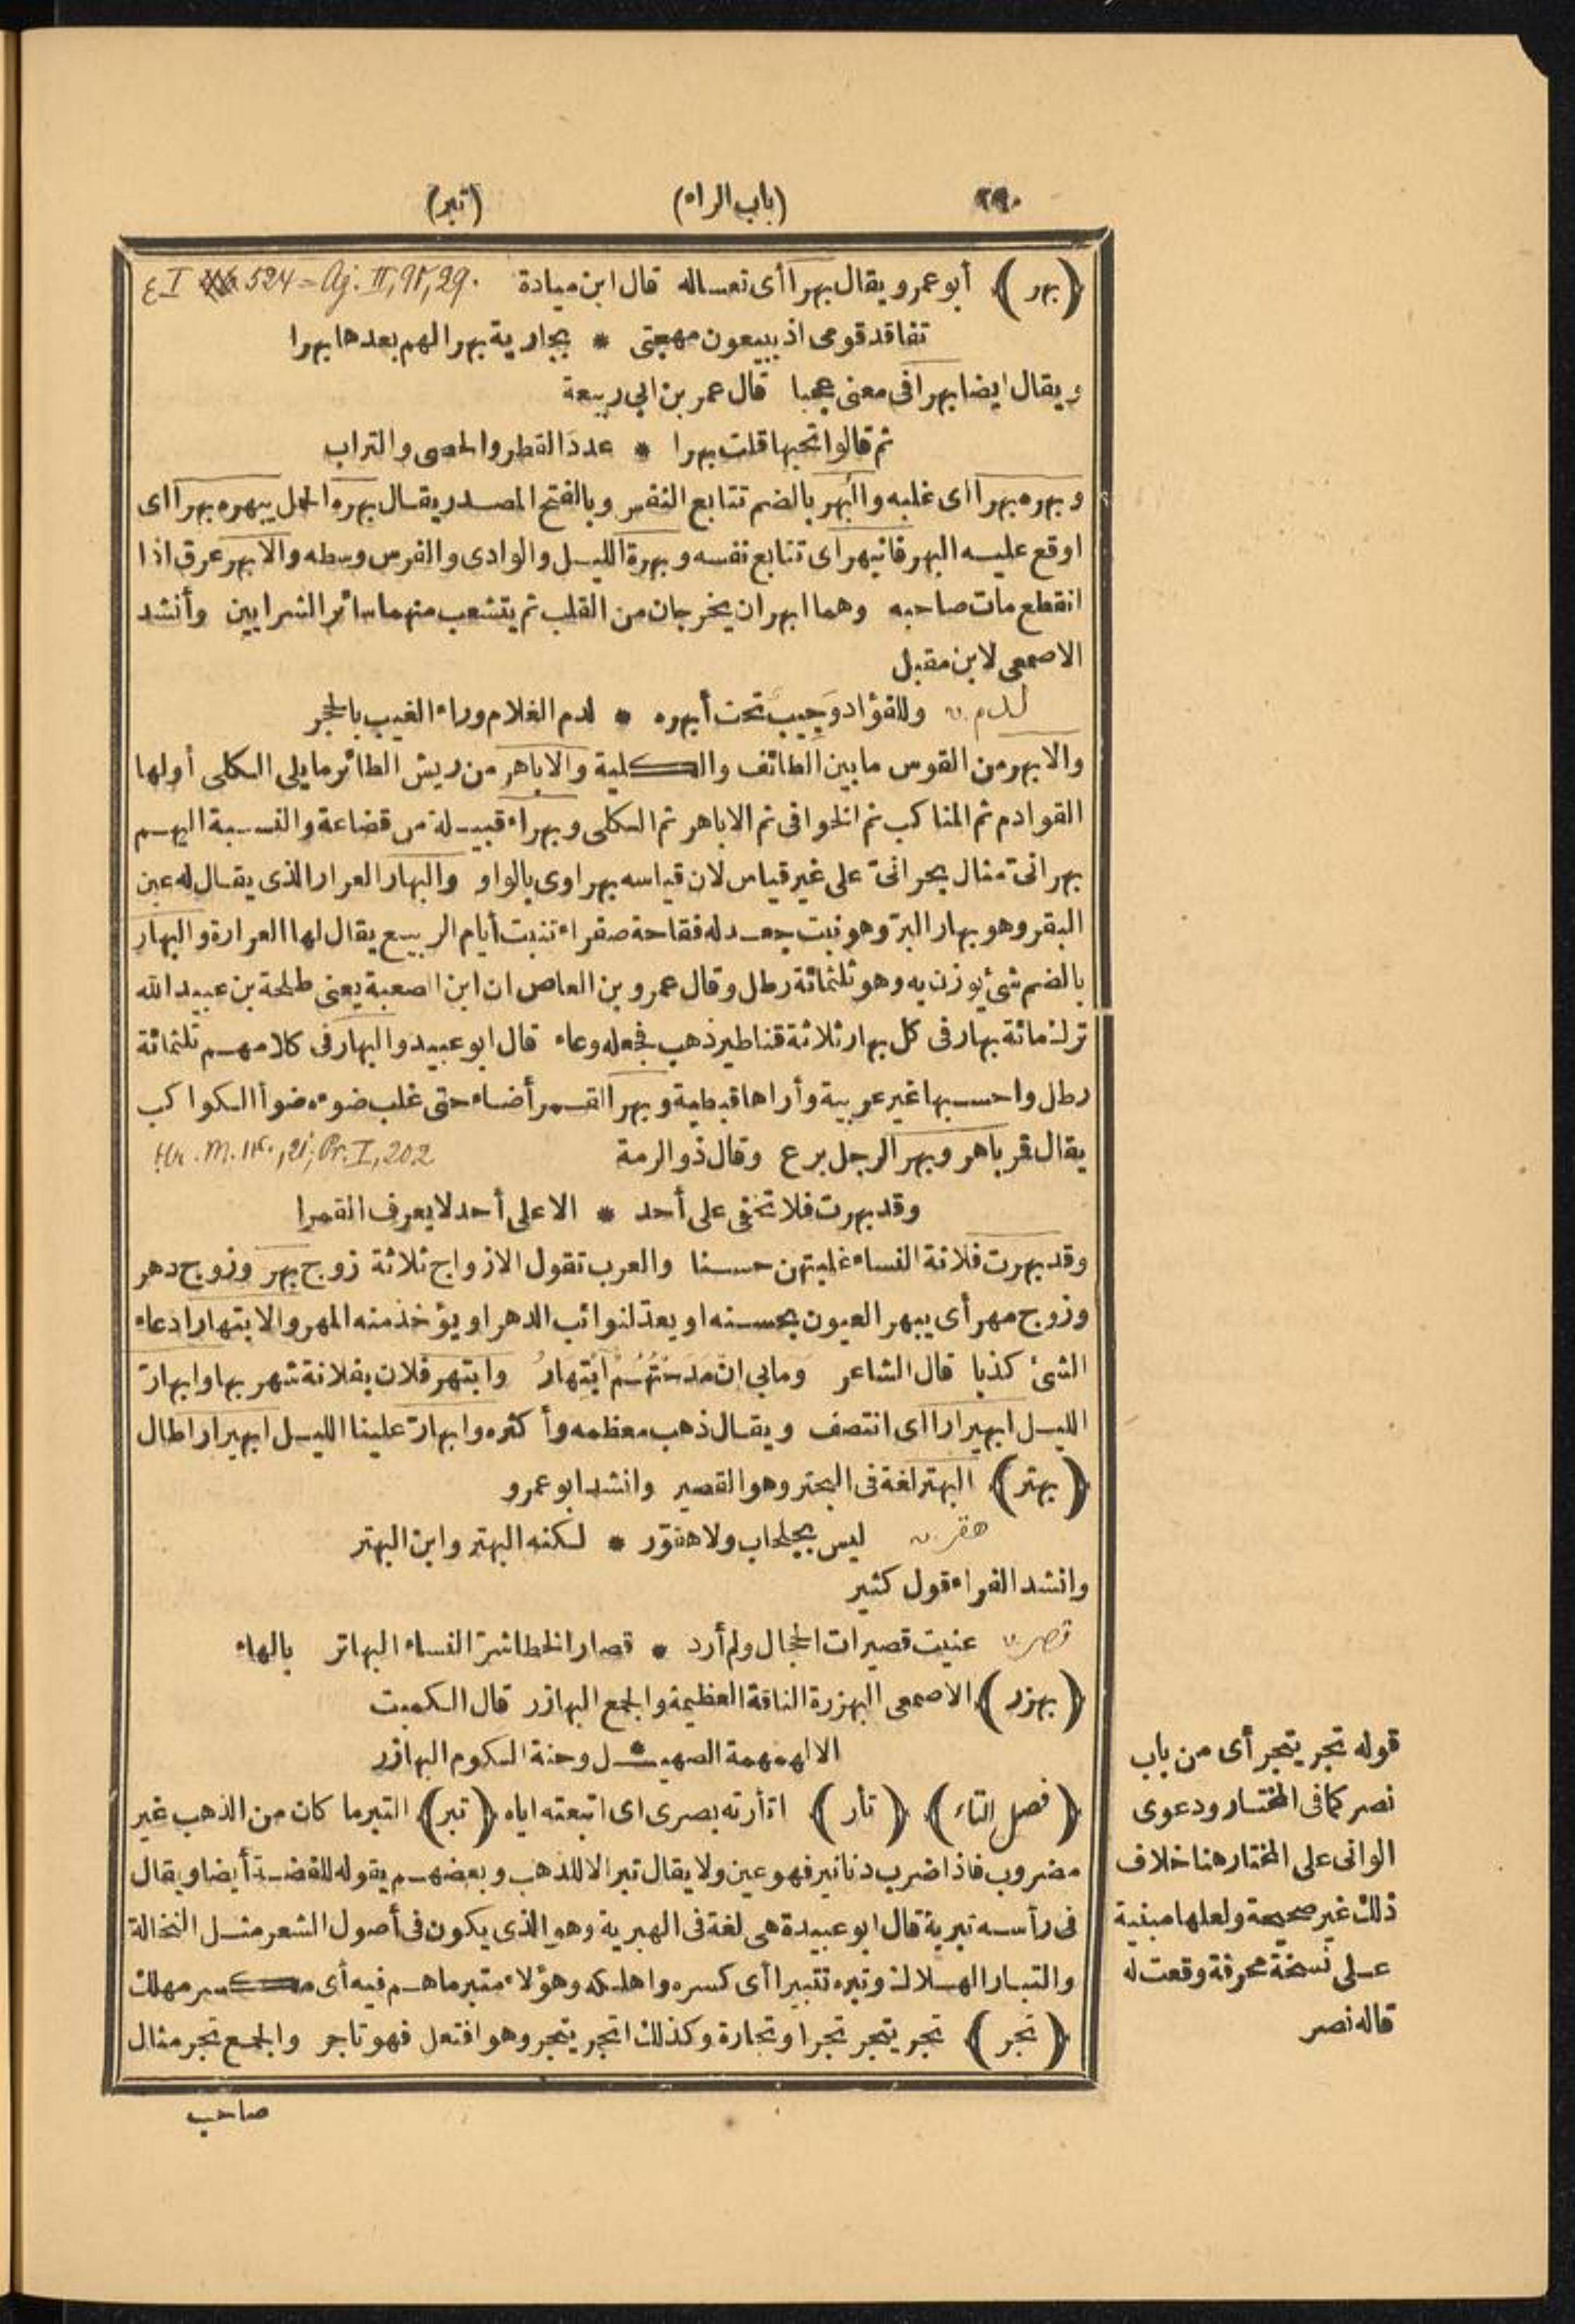 ٢٩٠ (باب الراء) (تبر)
﴿بهر﴾ أبو عمرو يقال بهرا أى تعسا له قال ابن ميادة
تفاقد قومى اذ يبيعون مهجتى * بجارية بهرا لهم بعدها بهرا
ويقال ايضا بهرا فى معنى عجبا قال عمر بن ابى ربيعة
ثم قالوا تحبها قلت بهرا * عدد القطر والحصى والتراب
وبهره بهرا اى غلبه والبُهر بالضم تتابع النفس وبالفتح المصدر يقال بهره الحمل يبهره بهرا اى
اوقع عليه البهر فانبهر اى تتابع نفسه وبهرة الليل والوادى والفرس وسطه والابهر عرق اذا
انقطع مات صاحبه وهما ابهران يخرجان من القلب ثم يتشعب منهما سائر الشرايين وأنشد
الاصمعى لابن مقبل
لدم وللفؤاد وَجِيب تحت أبهره * لدم الغلام وراء الغيب بالحجر
والابهر من القوس ما بين الطائف والكلية والاباهر من ريش الطائر ما يلى الكلى أولها
القوادم ثم المناكب ثم الخوافى ثم الاباهر ثم الكلى وبهراء قبيلة من قضاعة والنسبة اليهم
بهرانىّ مثال بحرانىّ على غير قياس لان قياسه بهراوى بالواو والبهار العرار الذى يقال له عين
البقر وهو بهار البرّ وهو نبت جعد له فقاحة صفراء تنبت أيام الربيع يقال لها العرارة والبهار
بالضم شئ يوزن به وهو ثلثمائة رطل وقال عمرو بن العاص ان ابن الصعبة يعنى طلحة بن عبيد الله
ترك مائة بهار فى كل بهار ثلاثة قناطير ذهب فجعله وعاء قال ابو عبيد والبهار فى كلامهم ثلثمائة
رطل واحسبها غير عربية وأراها قبطية وبهر القمر أضاء حتى غلب ضوءه ضوأ الكواكب
يقال قمر باهر وبهر الرجل برع وقال ذو الرمة
وقد بهرت فلا تخفى على أحد * الا على أحد لا يعرف القمرا
وقد بهرت فلانة النساء غلبتهن حسنا والعرب تقول الازواج ثلاثة زوج بهر وزوج دهر
وزوج مهر أى يبهر العيون بحسنه او يعدّ لنوائب الدهر او يؤخذ منه المهر والابتهار ادعاء
الشئ كذبا قال الشاعر وما بى ان مدحتُهُمُ ابْتِهارُ وابتهر فلان بفلانة شهر بها وابهارّ
الليل ابهيرارا اى انتصف ويقال ذهب معظمه وأكثره وابهارّ علينا الليل ابهيرارا طال
﴿بهتر﴾ البهتر لغة فى البحتر وهو القصير وانشد ابو عمرو
هقر ليس بجلحاب ولا هقوّر * لكنه البهتر وابن البهتر
وانشد الفراء قول كثير
قصر عنيت قصيرات الحجال ولم أرد * قصار الخطا شرّ النساء البهاتر بالهاء
﴿بهزر﴾ الاصمعى البهزرة الناقة العظيمة والجمع البهازر قال الكميت
الا لهمهمة الصهيـ * ـل وحنة الكوم البهازر
﴿فصل التاء﴾ ﴿تأر﴾ اتأرته بصرى اى اتبعته اياه ﴿تبر﴾ التبر ما كان من الذهب غير
مضروب فاذا ضرب دنانير فهو عين ولا يقال تبر الا للذهب وبعضهم يقوله للفضة أيضا ويقال
فى رأسه تبرية قال ابو عبيدة هى لغة فى الهبرية وهو الذى يكون فى أصول الشعر مثل النخالة
والتبار الهلاك وتبره تتبيرا أى كسره واهلكه وهؤلاء متبر ما هم فيه أى مكسر مهلك
﴿تجر﴾ تجر يتجر تجرا وتجارة وكذلك اتجر يتجر وهو افتعل فهو تاجر والجمع تجر مثال
صاحب
قوله تجر يتجر أى من باب
نصر كما فى المختار ودعوى
الوانى على المختار هنا خلاف
ذلك غير صحيحة ولعلها مبنية
على نسخة محرفة وقعت له
قاله نصر